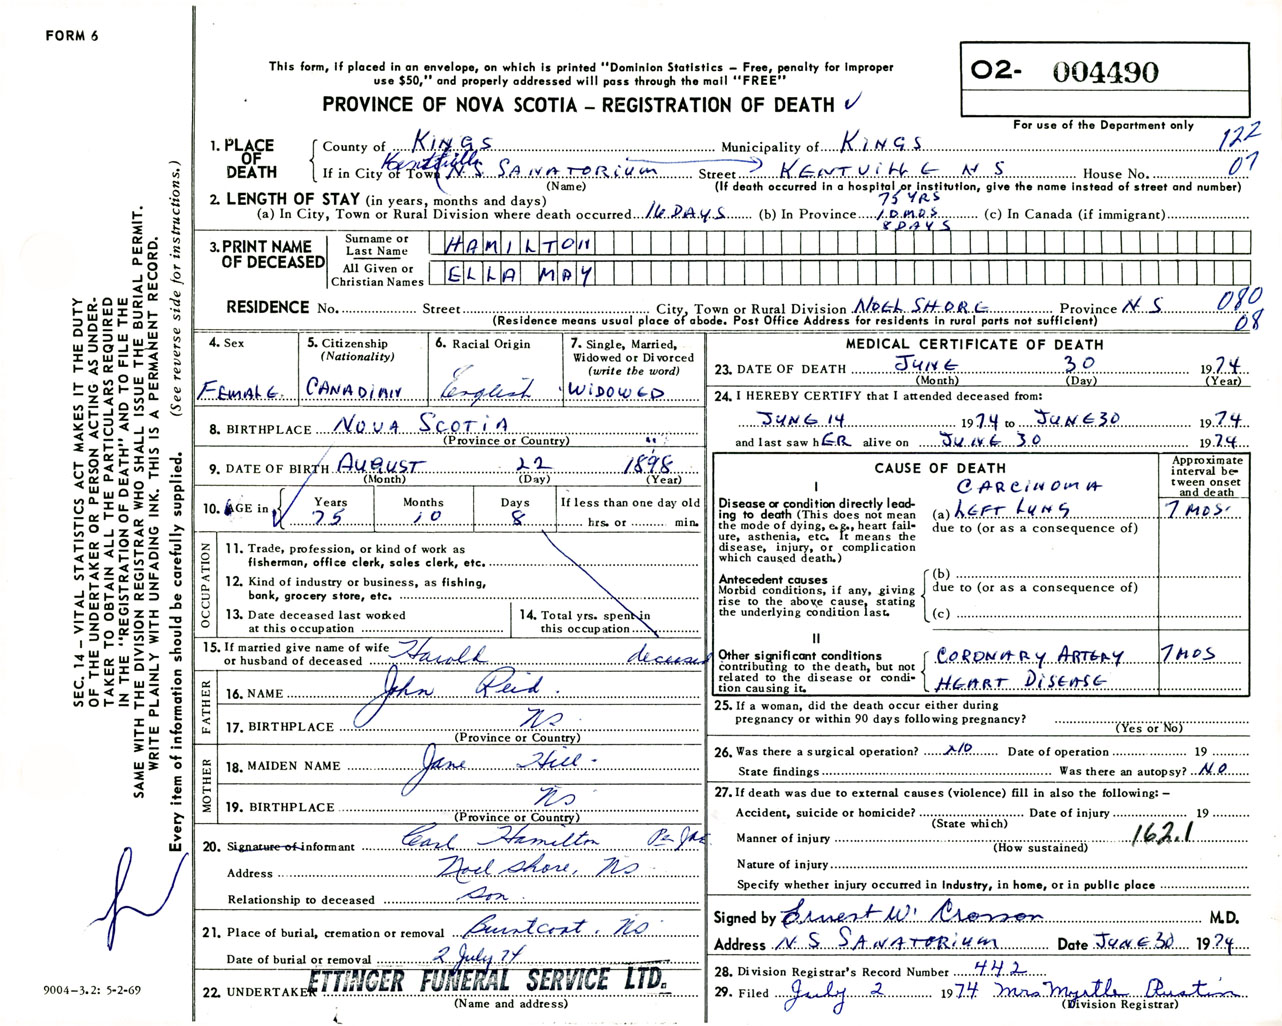 FORM 6
This form, if placed in an envelope, on which is printed "Dominion Statistics – Free, penalty for improper
use $50," and properly addressed will pass through the mail "FREE"
PROVINCE OF NOVA SCOTIA – REGISTRATION OF DEATH ✓
O2- 004490
For use of the Department only
122
07
1. PLACE OF DEATH
County of KINGS Municipality of KINGS
If in City or Town Kentville N S SANATORIUM Street KENTVILLE N S House No.
(Name) (If death occurred in a hospital or institution, give the name instead of street and number)
2. LENGTH OF STAY (in years, months and days)
75 YRS
(a) In City, Town or Rural Division where death occurred 16 DAYS (b) In Province 10 MOS (c) In Canada (if immigrant)
8 DAYS
3. PRINT NAME OF DECEASED
Surname or Last Name HAMILTON
All Given or Christian Names ELLA MAY
RESIDENCE No. Street City, Town or Rural Division NOEL SHORE Province N S
(Residence means usual place of abode. Post Office Address for residents in rural parts not sufficient)
080
08
4. Sex FEMALE
5. Citizenship (Nationality) CANADIAN
6. Racial Origin English
7. Single, Married, Widowed or Divorced (write the word) WIDOWED
8. BIRTHPLACE NOVA SCOTIA
(Province or Country)
9. DATE OF BIRTH AUGUST 22 1898
(Month) (Day) (Year)
10. AGE in Years Months Days If less than one day old
75 10 8 hrs. or min.
OCCUPATION
11. Trade, profession, or kind of work as
fisherman, office clerk, sales clerk, etc.
12. Kind of industry or business, as fishing,
bank, grocery store, etc.
13. Date deceased last worked
at this occupation
14. Total yrs. spent in
this occupation
15. If married give name of wife
or husband of deceased Harold deceased
FATHER
16. NAME John Reid
17. BIRTHPLACE NS
(Province or Country)
MOTHER
18. MAIDEN NAME Jane Hill
19. BIRTHPLACE NS
(Province or Country)
20. Signature of informant Carl Hamilton
Address Noel Shore, NS
Relationship to deceased son
21. Place of burial, cremation or removal Burntcoat, NS
Date of burial or removal 2 July 74
22. UNDERTAKER ETTINGER FUNERAL SERVICE LTD.
(Name and address)
MEDICAL CERTIFICATE OF DEATH
23. DATE OF DEATH JUNE 30 1974
(Month) (Day) (Year)
24. I HEREBY CERTIFY that I attended deceased from:
JUNE 14 1974 to JUNE 30 1974
and last saw hER alive on JUNE 30 1974
CAUSE OF DEATH
Approximate interval between onset and death
I
CARCINOMA
Disease or condition directly leading to death (This does not mean the mode of dying, e.g., heart failure, asthenia, etc. It means the disease, injury, or complication which caused death.)
(a) LEFT LUNG 7 MOS.
due to (or as a consequence of)
Antecedent causes
Morbid conditions, if any, giving rise to the above cause, stating the underlying condition last.
(b)
due to (or as a consequence of)
(c)
II
Other significant conditions
contributing to the death, but not related to the disease or condition causing it.
CORONARY ARTERY 7 MOS
HEART DISEASE
25. If a woman, did the death occur either during
pregnancy or within 90 days following pregnancy?
(Yes or No)
26. Was there a surgical operation? NO Date of operation 19
State findings Was there an autopsy? NO
27. If death was due to external causes (violence) fill in also the following: –
Accident, suicide or homicide? Date of injury 19
(State which)
Manner of injury 162.1
(How sustained)
Nature of injury
Specify whether injury occurred in Industry, in home, or in public place
Signed by Ernest W. Crosson M.D.
Address N S SANATORIUM Date JUNE 30 1974
28. Division Registrar's Record Number 442
29. Filed July 2 1974 Mrs Myrtle Rustin
(Division Registrar)
SEC. 14 – VITAL STATISTICS ACT MAKES IT THE DUTY
OF THE UNDERTAKER OR PERSON ACTING AS UNDER-
TAKER TO OBTAIN ALL THE PARTICULARS REQUIRED
IN THE "REGISTRATION OF DEATH" AND TO FILE THE
SAME WITH THE DIVISION REGISTRAR WHO SHALL ISSUE THE BURIAL PERMIT.
WRITE PLAINLY WITH UNFADING INK. THIS IS A PERMANENT RECORD.
Every item of information should be carefully supplied. (See reverse side for instructions.)
9004–3.2: 5-2-69